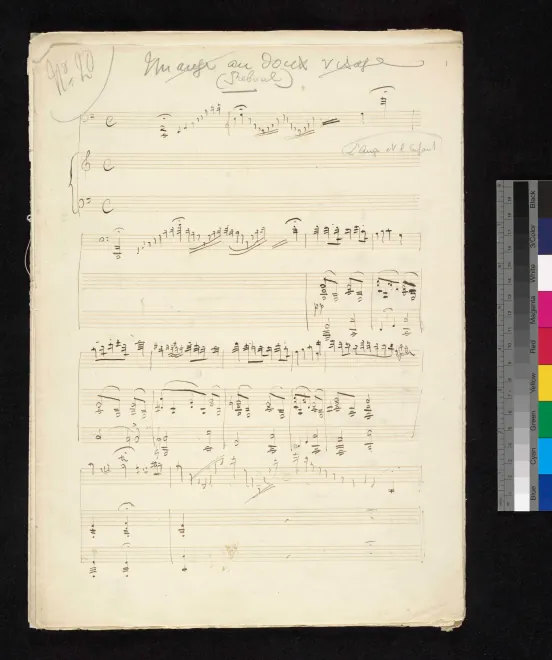 Nr. 20
Un ange au doux visage
(Reboul)
L'ange et l'enfant
Black
3/Color
White
Magenta
Red
Yellow
Green
Cyan
Blue